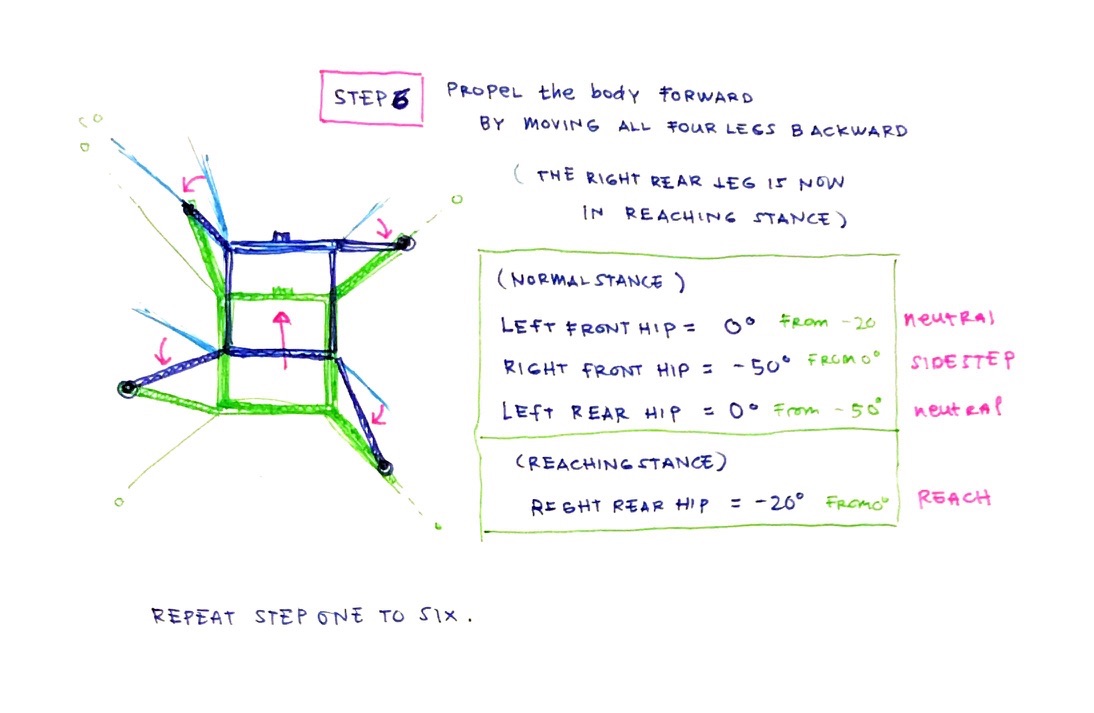 STEP 6
PROPEL the body FORWARD
BY MOVING ALL FOUR LEGS BACKWARD
( THE RIGHT REAR LEG IS NOW
IN REACHING STANCE )
(NORMAL STANCE )
LEFT FRONT HIP = 0° FROM -20 neutRAl
RIGHT FRONT HIP = -50° FROM 0° SIDESTEP
LEFT REAR HIP = 0° From -50° neutRAl
(REACHING STANCE)
REGHT REAR HIP = -20° FROM 0° REACH
REPEAT STEP ONE TO SIX.